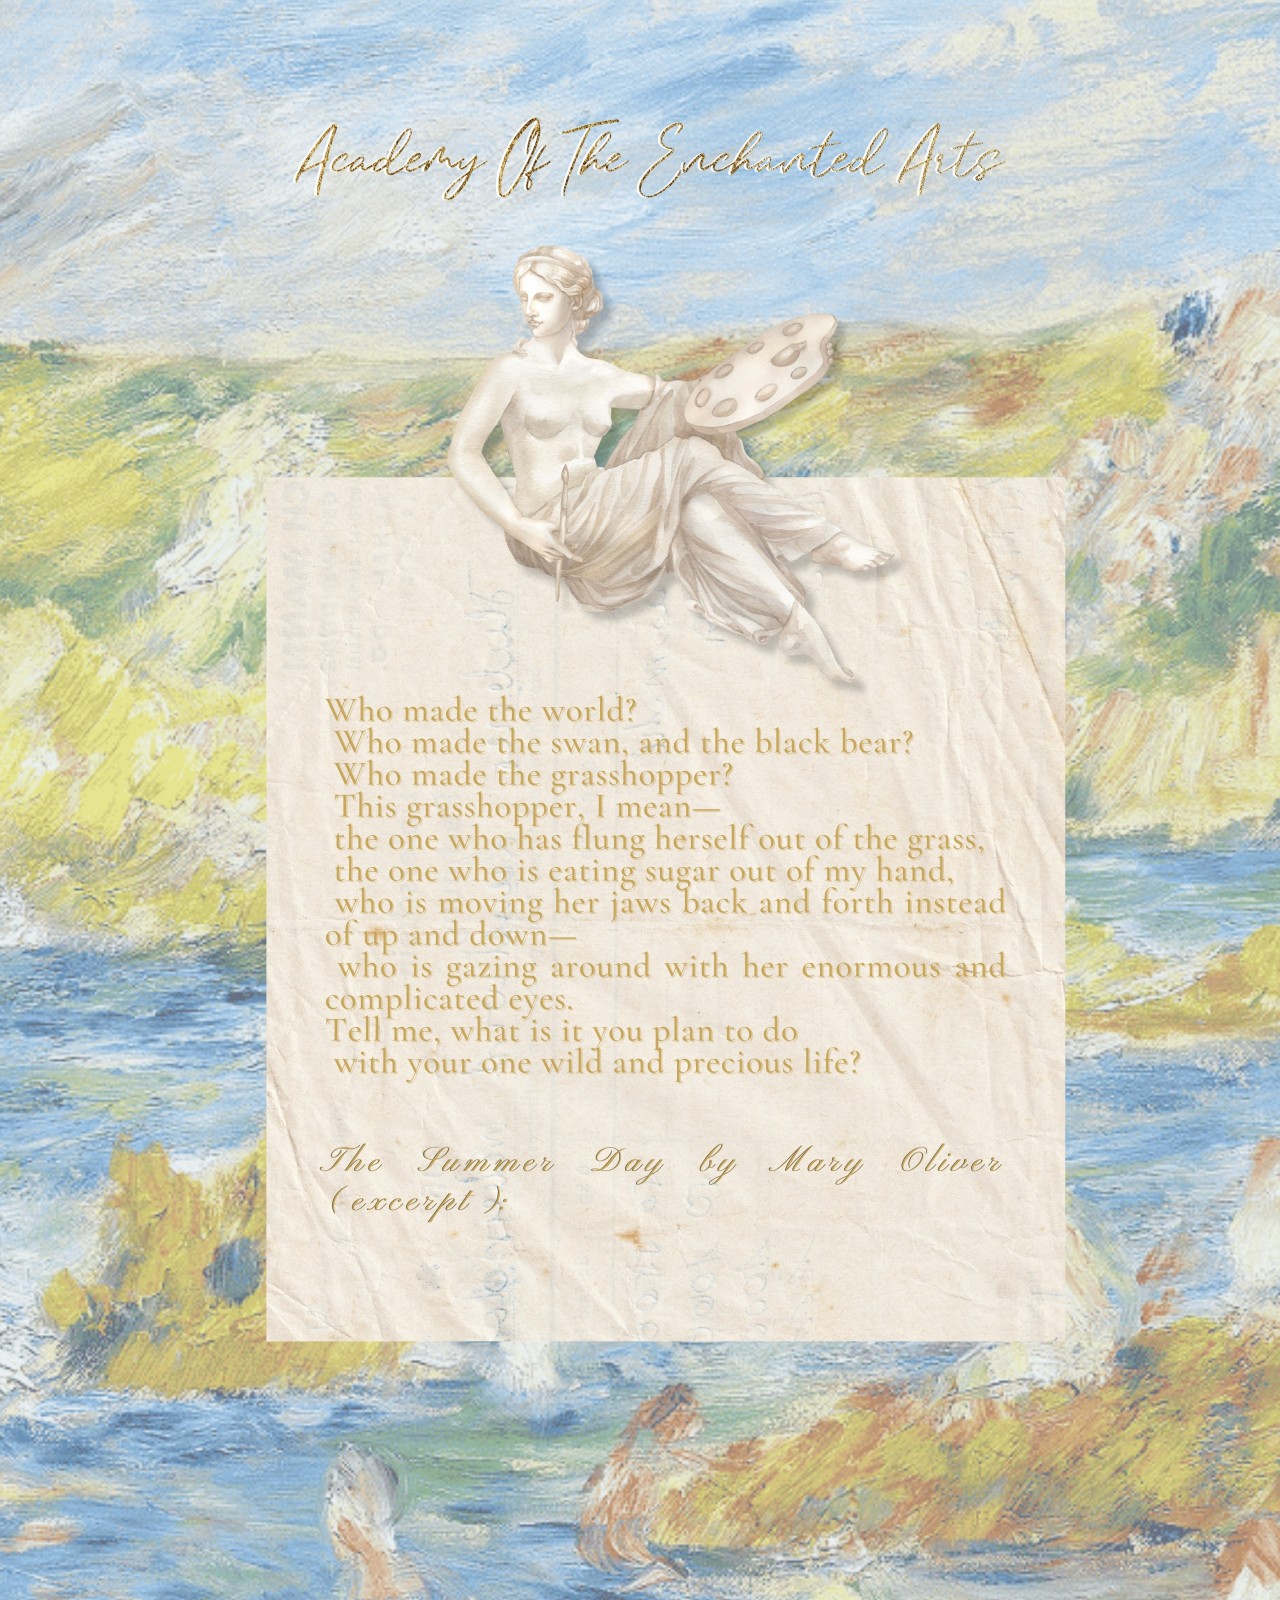 Academy Of The Enchanted Arts
Who made the world?
Who made the swan, and the black bear?
Who made the grasshopper?
This grasshopper, I mean—
the one who has flung herself out of the grass,
the one who is eating sugar out of my hand,
who is moving her jaws back and forth instead
of up and down—
who is gazing around with her enormous and
complicated eyes.
Tell me, what is it you plan to do
with your one wild and precious life?
The Summer Day by Mary Oliver
(excerpt):